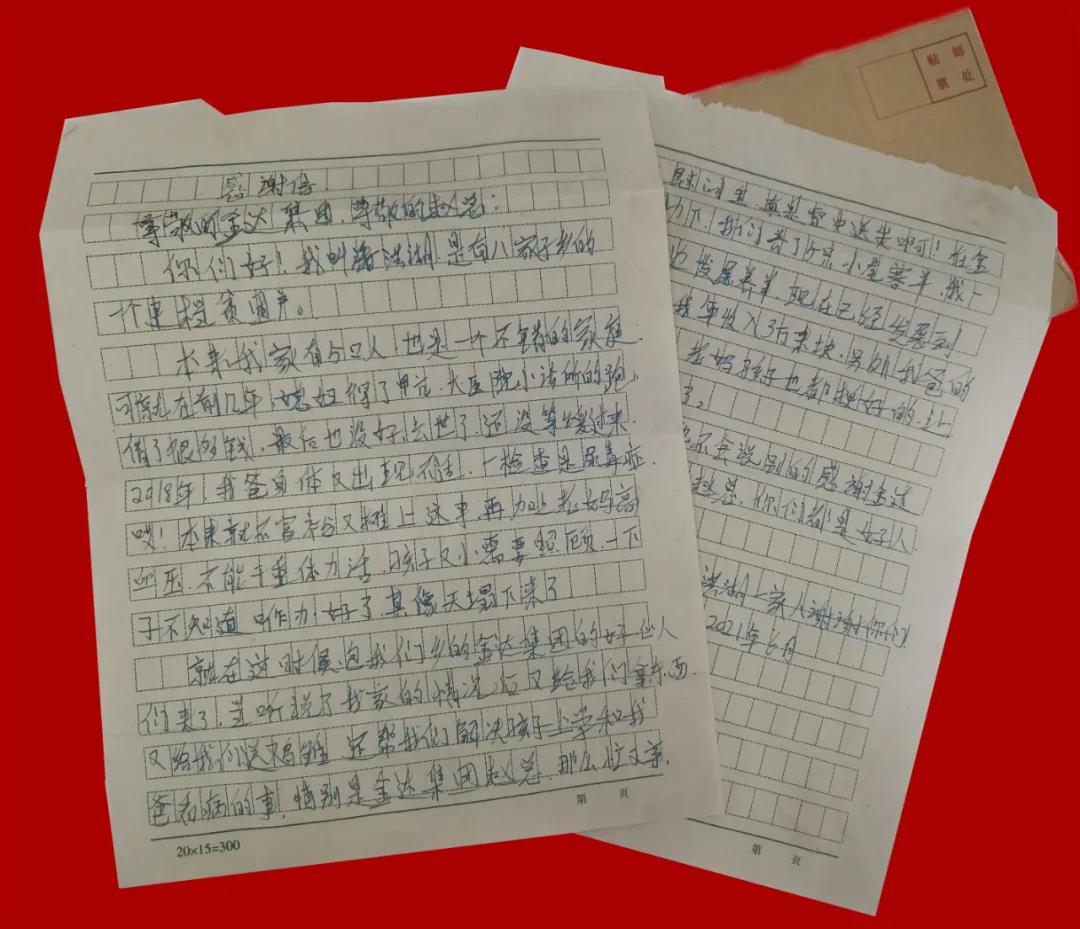 感谢信
尊敬的金达集团,尊敬的赵总:
你们好!我叫 洪湖,是白八家子乡的
一个建档贫困户。
本来我家有5口人,也是一个不错的家庭,
可惜在前几年,媳妇得了 ,大医院小诊所的跑,
借了很多钱,最后也没好去世了,还没等缓过来,
2018年,我爸身体又出现 ,一检查是尿毒症,
哎!本来就不富裕又摊上这事,再加上老妈高
血压,不能干重体力活,孩子又小需要照顾,一下
子不知道咋办好了,真像天塌下来了
就在这时候,包我们乡的金达集团的好心人
们来了,当听说了我家的情况后又给我们拿东西,
又给我们送 ,还帮我们解决孩子上学和我
爸看病的事,特别是金达集团赵总,那么忙又亲
第 页
20×15=300
慰问金,真是雪中送炭啊!在金
力下,我们养了 只小尾寒羊,我一
发展养羊,现在已经发展到
我年收入3万来块,另外我爸的
老妈孩子也都挺好的,让
了。
不会说别的,感谢金达
赵总,你们都是好人,
洪湖一家人谢谢你们
2021年6月
第 页
贴 邮
票 处